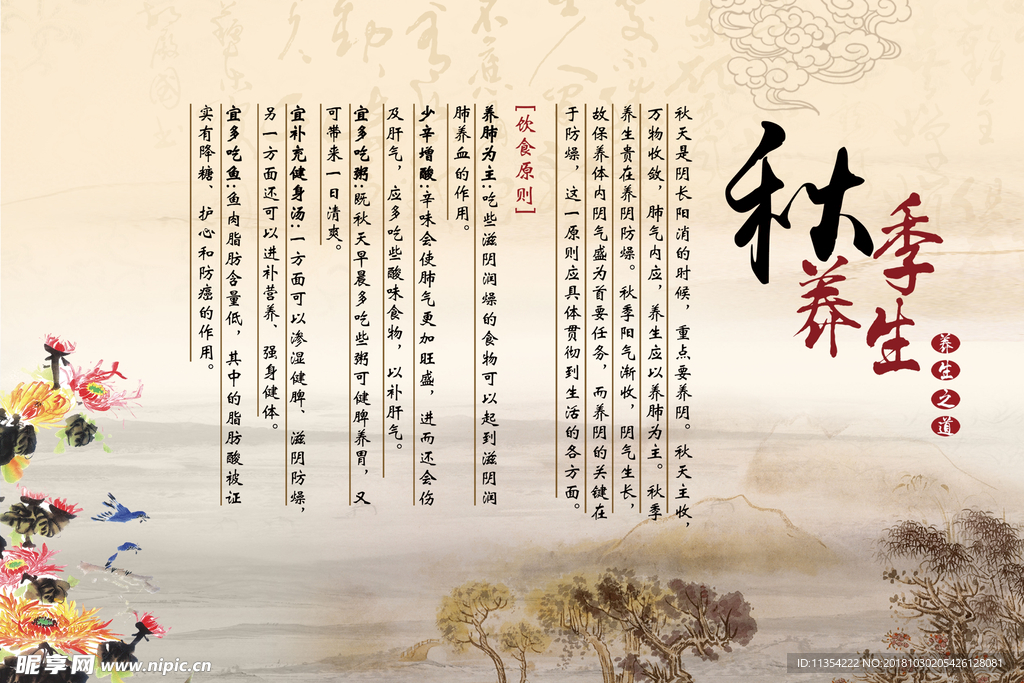 秋季养生
养生之道
秋天是阴长阳消的时候，重点要养阴。秋天主收，
万物收敛，肺气内应，养生应以养肺为主。秋季
养生贵在养阴防燥。秋季阳气渐收，阴气生长，
故保养体内阴气盛为首要任务，而养阴的关键在
于防燥，这一原则应具体贯彻到生活的各方面。
[饮食原则]
养肺为主:吃些滋阴润燥的食物可以起到滋阴润
肺养血的作用。
少辛增酸:辛味会使肺气更加旺盛，进而还会伤
及肝气，应多吃些酸味食物，以补肝气。
宜多吃粥:既秋天早晨多吃些粥可健脾养胃，又
可带来一日清爽。
宜补充健身汤:一方面可以渗湿健脾、滋阴防燥，
另一方面还可以进补营养、强身健体。
宜多吃鱼:鱼肉脂肪含量低，其中的脂肪酸被证
实有降糖、护心和防癌的作用。
昵享网 www.nipic.cn
ID:11354222 NO:20181030205426128081